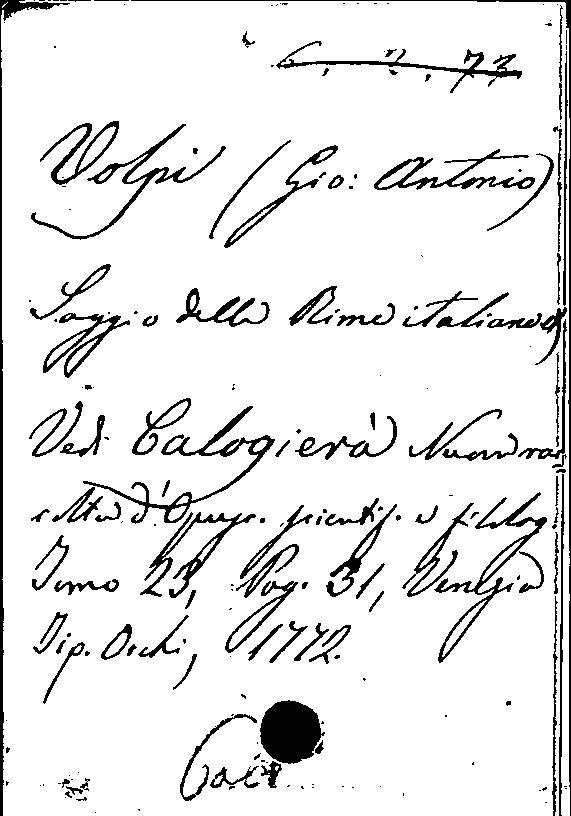 6. 2. 73
Volpi (Gio: Antonio)
Saggio delle Rime italiane
Vedi Calogierà Nuova rac
colta d'Opusc. scientif. e filolog.
Tomo 23, Pag. 31, Venezia
Tip. Occhi, 1772.